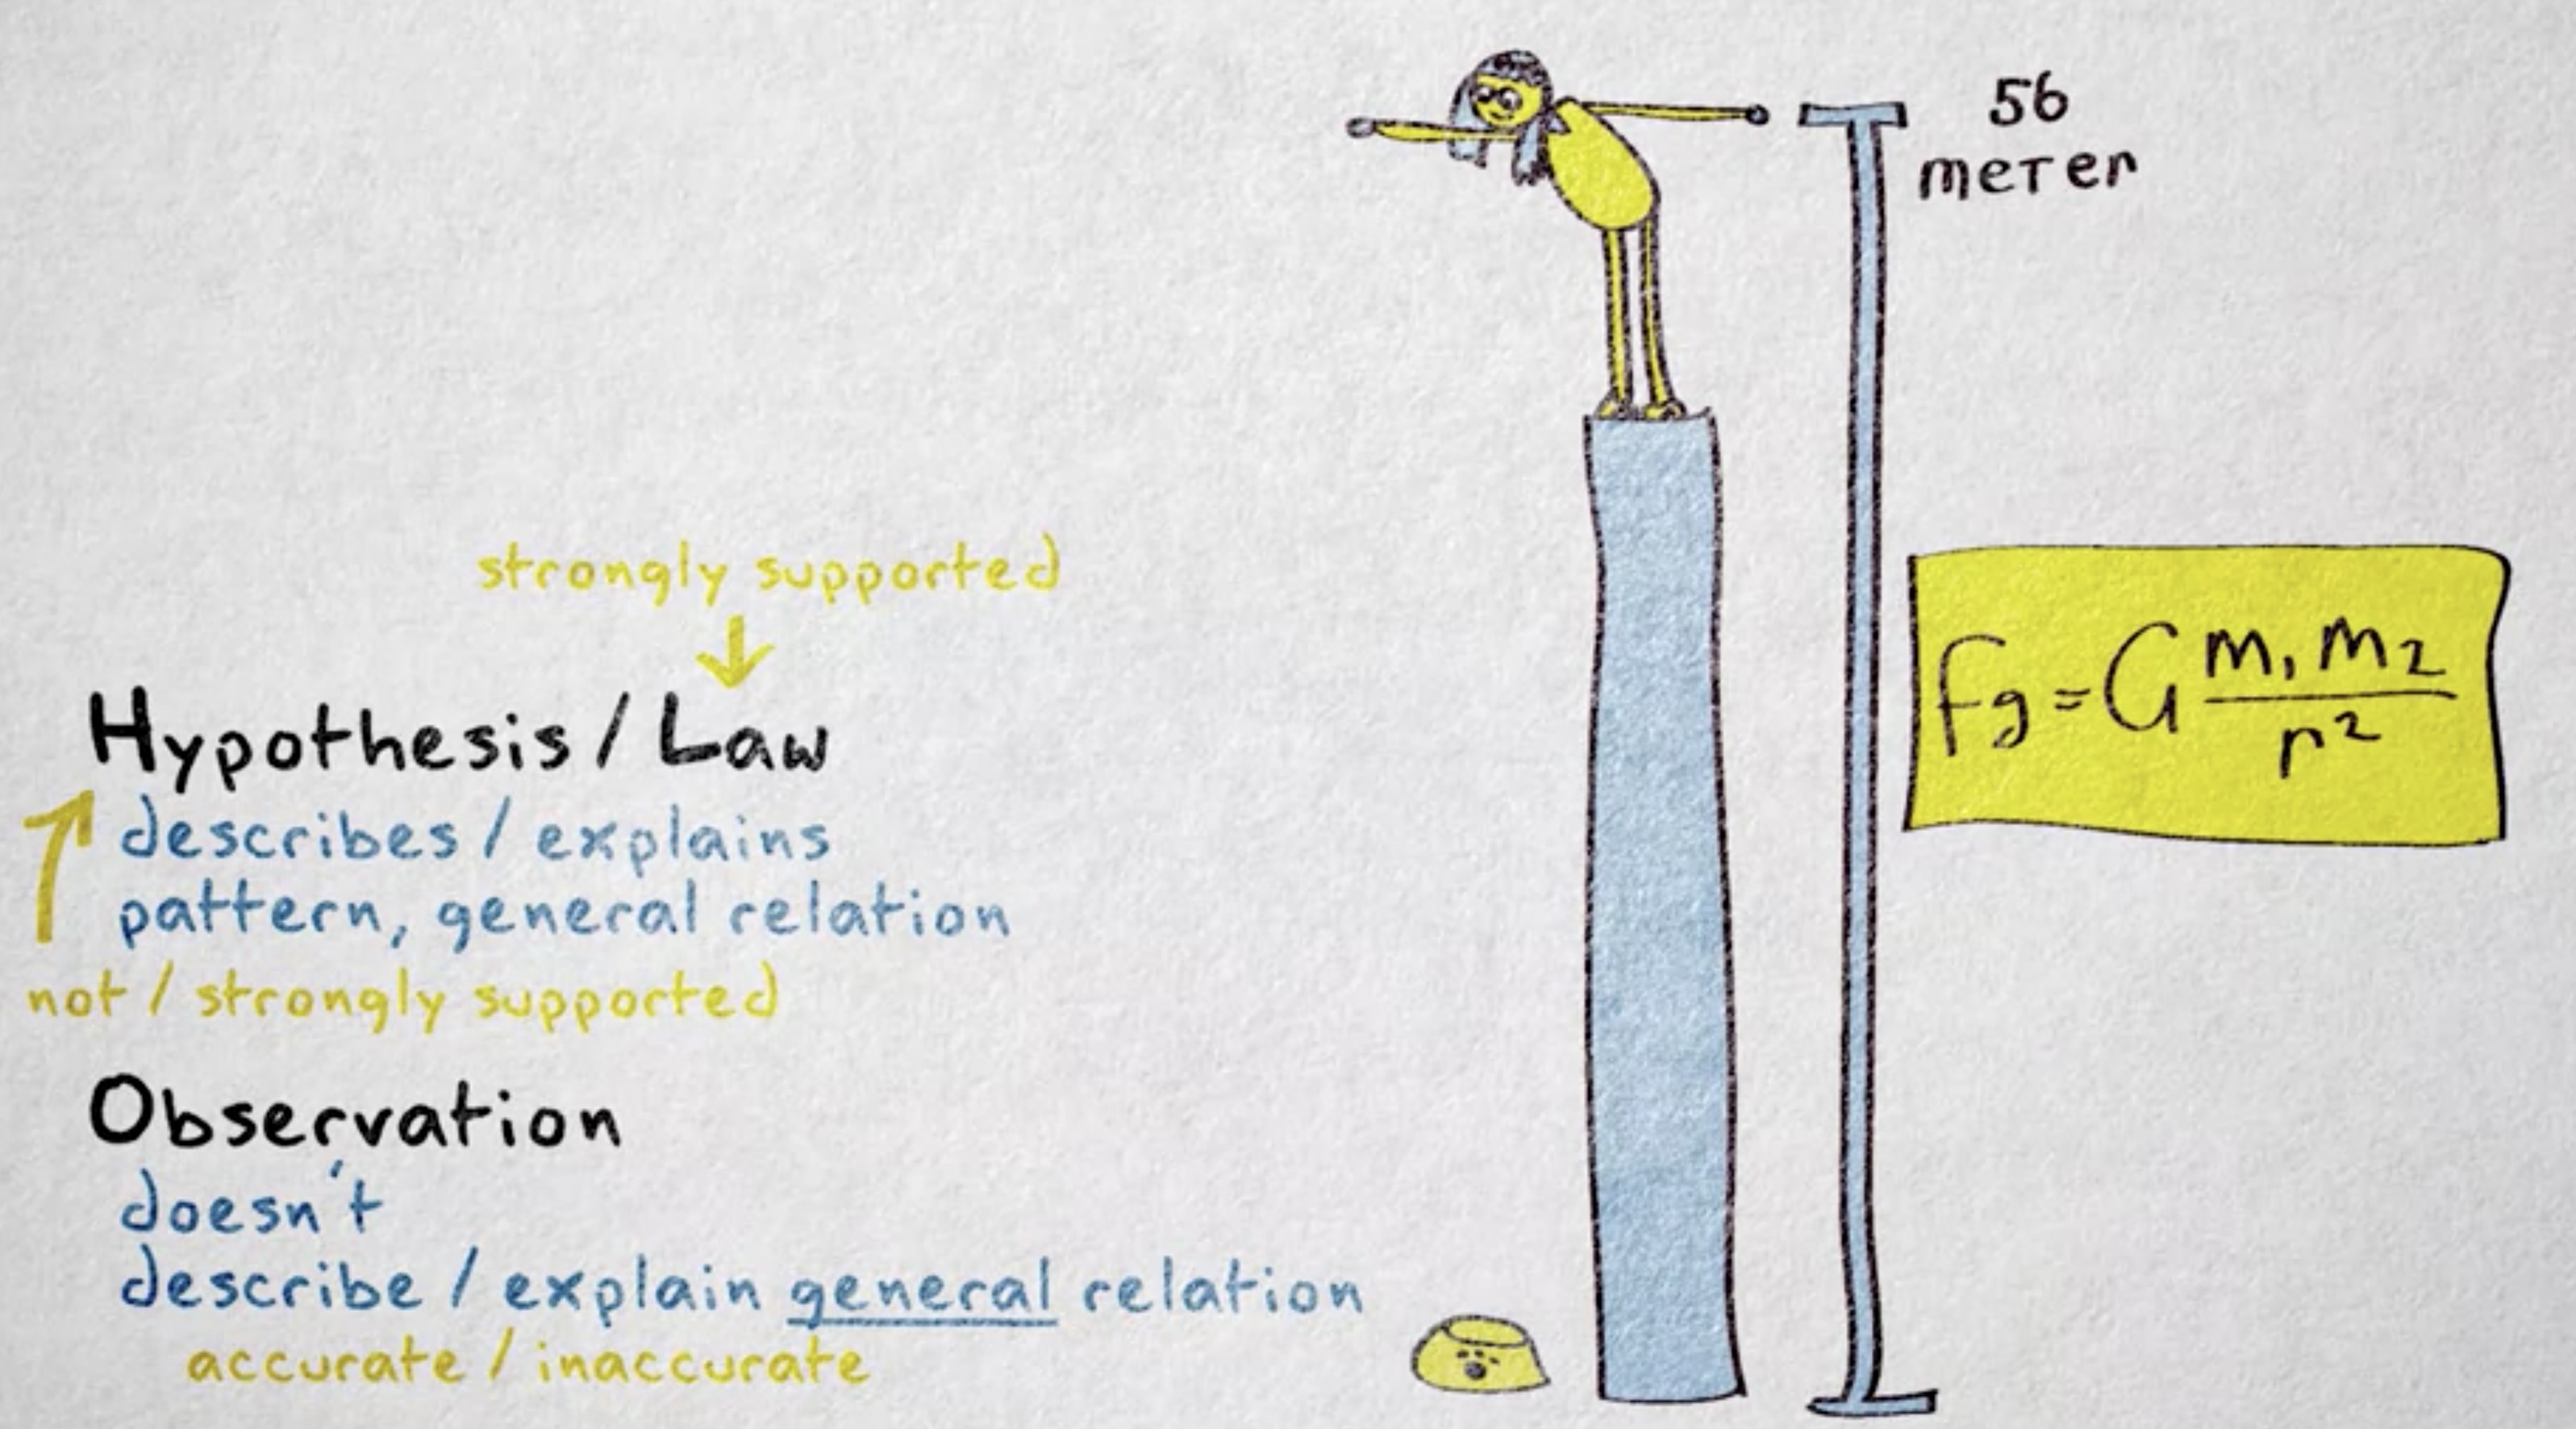 strongly supported
Hypothesis / Law
describes / explains
pattern, general relation
not / strongly supported
Observation
doesn't
describe / explain general relation
accurate / inaccurate
56
meter
Fg = G m₁ m₂ / r²